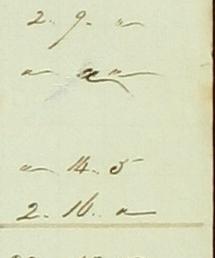 2. 9. "
" " "
" 14. 5
2. 16. "